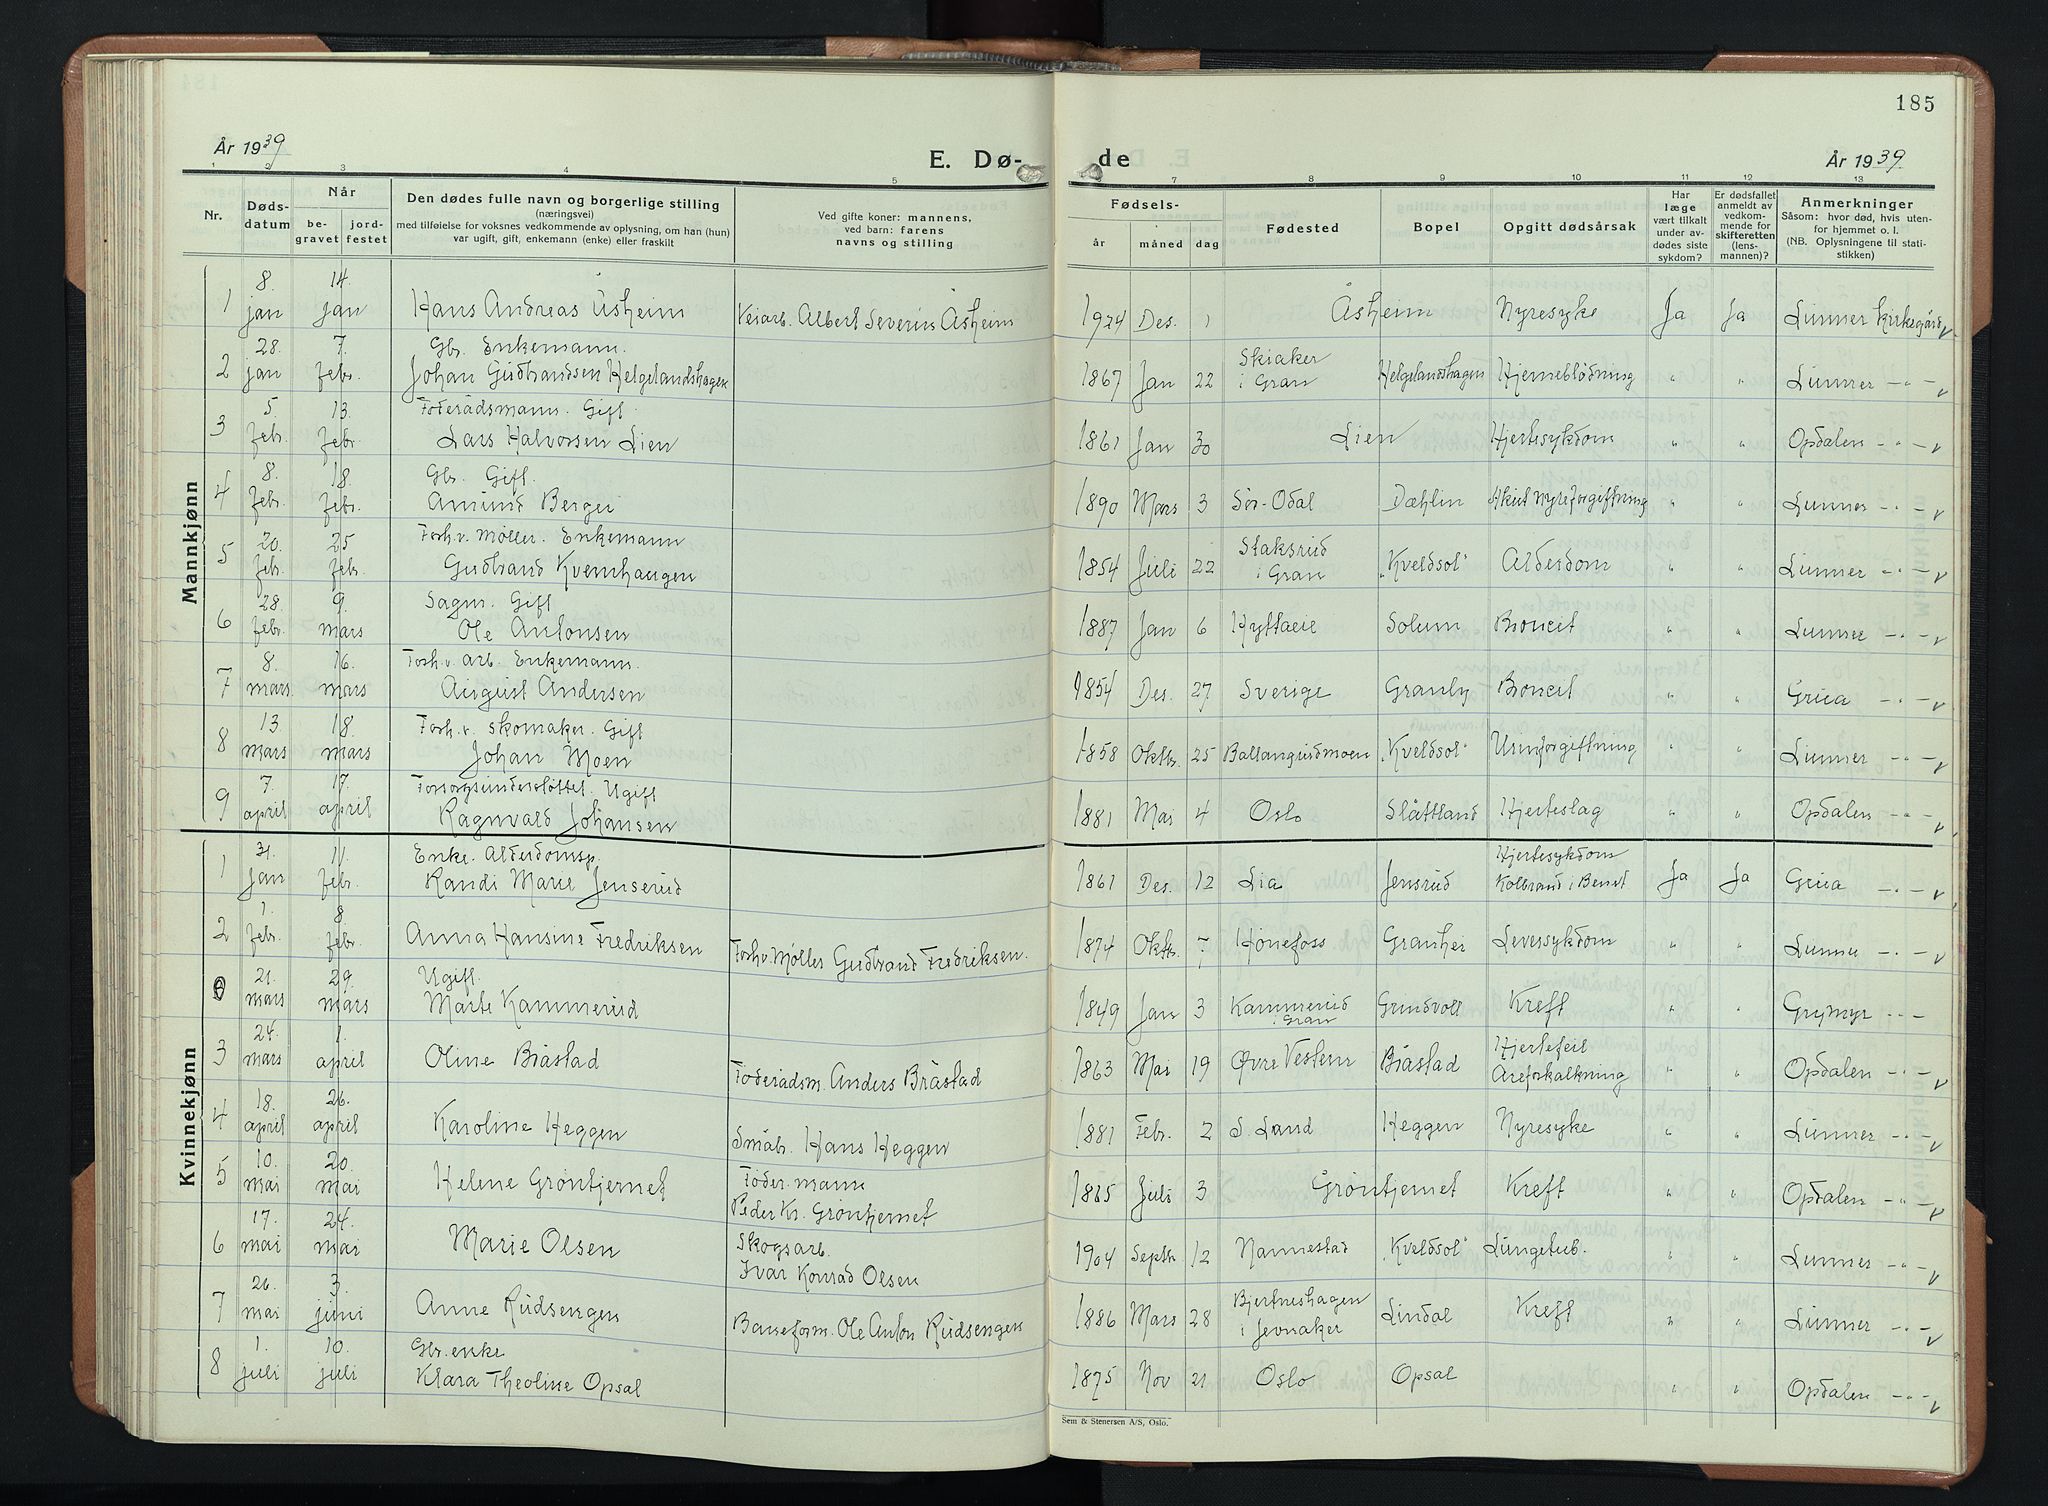 185
År 1939
E. Dø-
de
År 1939
1 2 3 4 5 6 7 8 9 10 11 12 13
Nr.
Døds-
datum
Når
be-
gravet
jord-
festet
Den dødes fulle navn og borgerlige stilling
(næringsvei)
med tilføielse for voksnes vedkommende av oplysning, om han (hun)
var ugift, gift, enkemann (enke) eller fraskilt
Ved gifte koner: mannens,
ved barn: farens
navns og stilling
Fødsels-
år måned dag
Fødested
Bopel
Opgitt dødsårsak
Har
læge
vært tilkalt
under av-
dødes siste
sykdom?
Er dødsfallet
anmeldt av
vedkom-
mende for
skifteretten
(lens-
mannen)?
Anmerkninger
Såsom: hvor død, hvis uten-
for hjemmet o. l.
(NB. Oplysningene til stati-
stikken)
Mannkjønn
1 8. jan 14. jan Hans Andreas Åsheim Veiarb. Albert Severin Åsheim 1924 Des. 1 Åsheim Nyresyke Ja Ja Lunner Kirkegård
Gbr. Enkemann.
2 28. jan 7. febr. Johan Gudbrandsen Helgelandshagen 1867 Jan 22 Skiaker i Gran Helgelandshagen Hjerneblødning " " Lunner -"-
Føderådsmann. Gift.
3 5. febr. 13. febr. Lars Halvorsen Lien 1861 Jan 30 Lien Hjertesykdom " " Opdalen -"-
Gbr. Gift.
4 8. febr. 18. febr. Amund Berger 1890 Mars 3 Sør-Odal Dæhlin Akut nyreforgiftning " " Lunner -"-
Forh.v. Møller. Enkemann
5 20. febr. 25. febr. Gudbrand Kvernhaugen 1854 Juli 22 Staksrud i Gran "Kveldsol" Alderdom " " Lunner -"-
Sagm. Gift
6 28. febr. 9. mars Ole Antonsen 1887 Jan 6 Hyttaeie Solum Broncit " " Lunner -"-
Forh.v. arb. Enkemann.
7 8. mars 16. mars August Andersen 1854 Des. 27 Sverige Granly Broncit " " Grua -"-
Forh.v. skomaker. Gift
8 13. mars 18. mars Johan Moen 1858 Oktbr. 25 Ballangrudmoen "Kveldsol" Urinforgiftning " " Lunner -"-
Forsorgsunderstøttet. Ugift
9 7. april 17. april Ragnvard Johansen 1881 Mai 4 Oslo Slåttland Hjerteslag " " Opdalen -"-
Kvinnekjønn
Enke. Alderdomsp.
1 31. jan 11. febr. Randi Marie Jensrud 1861 Des. 12 Lia Jensrud Hjertesykdom Kolbrand i Benet Ja Ja Grua -"-
2 1. febr. 8 febr. Anna Hansine Fredriksen Forh.v. Møller Gudbrand Fredriksen. 1874 Oktbr. 7 Hønefoss Granhei Leversykdom " " Lunner -"-
Ugift.
21. mars 29. mars Marte Kammerud 1849 Jan 3 Kammerud i Gran Grindvoll Kreft " " Grymyr -"-
3 24. mars 1. april Oline Bråstad Føderådsm. Anders Bråstad 1863 Mai 19 Øvre Vestern Bråstad Hjertefeil Åreforkalkning " " Opdalen -"-
4 18. april 26. april Karoline Heggen Småb. Hans Heggen 1881 Febr. 2 S. Land Heggen Nyresyke " " Lunner -"-
5 10. mai 20. mai Helene Grøntjernet Føder.mann Peder Kr. Grøntjernet 1865 Juli 3 Grøntjernet Kreft " " Opdalen -"-
6 17. mai 24. mai Marie Olsen Skogsarb. Ivar Konrad Olsen 1904 Septbr. 12 Nannestad "Kveldsol" Lungetub. " " Lunner -"-
7 26. mai 3. juni Anne Rudsengen Baneform. Ole Anton Rudsengen 1886 Mars 28 Bjertneshagen i Jevnaker Lindal Kreft " " Lunner -"-
Gbr. enke
8 1. juli 10. juli Klara Theoline Opsal 1875 Nov 21 Oslo Opsal " " Opdalen -"-
Sem & Stenersen A/S, Oslo.